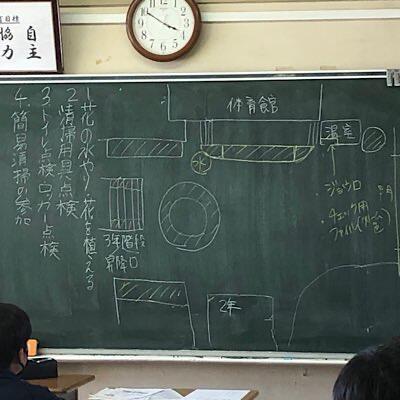 自主
協力
1.花の水やり 花を植える
2.清掃用具点検
3.トイレ点検 ロッカー点検
4.簡易清掃の参加
体育館
温室
水
・ジョウロ
・チェック用
ファイル
門
3年階段
昇降口
2年